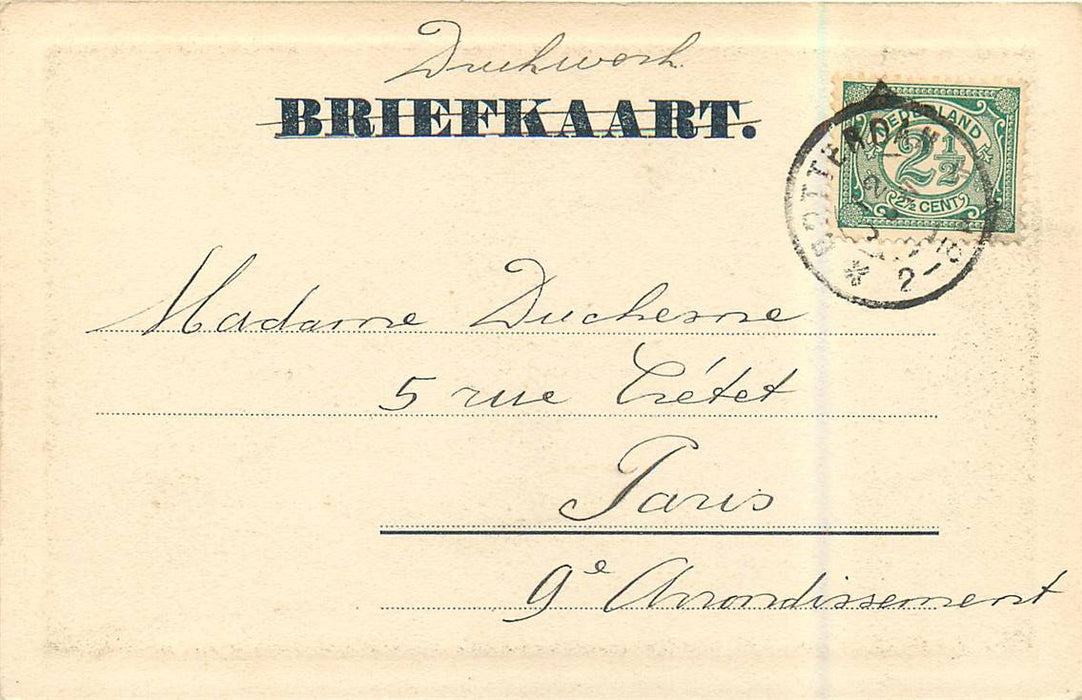 Drukwerk.
BRIEFKAART.
NEDERLAND
2½
2½ CENT
ROTTERDAM
Madame Duchesne
5 rue Crétet
Paris
9e Arrondissement